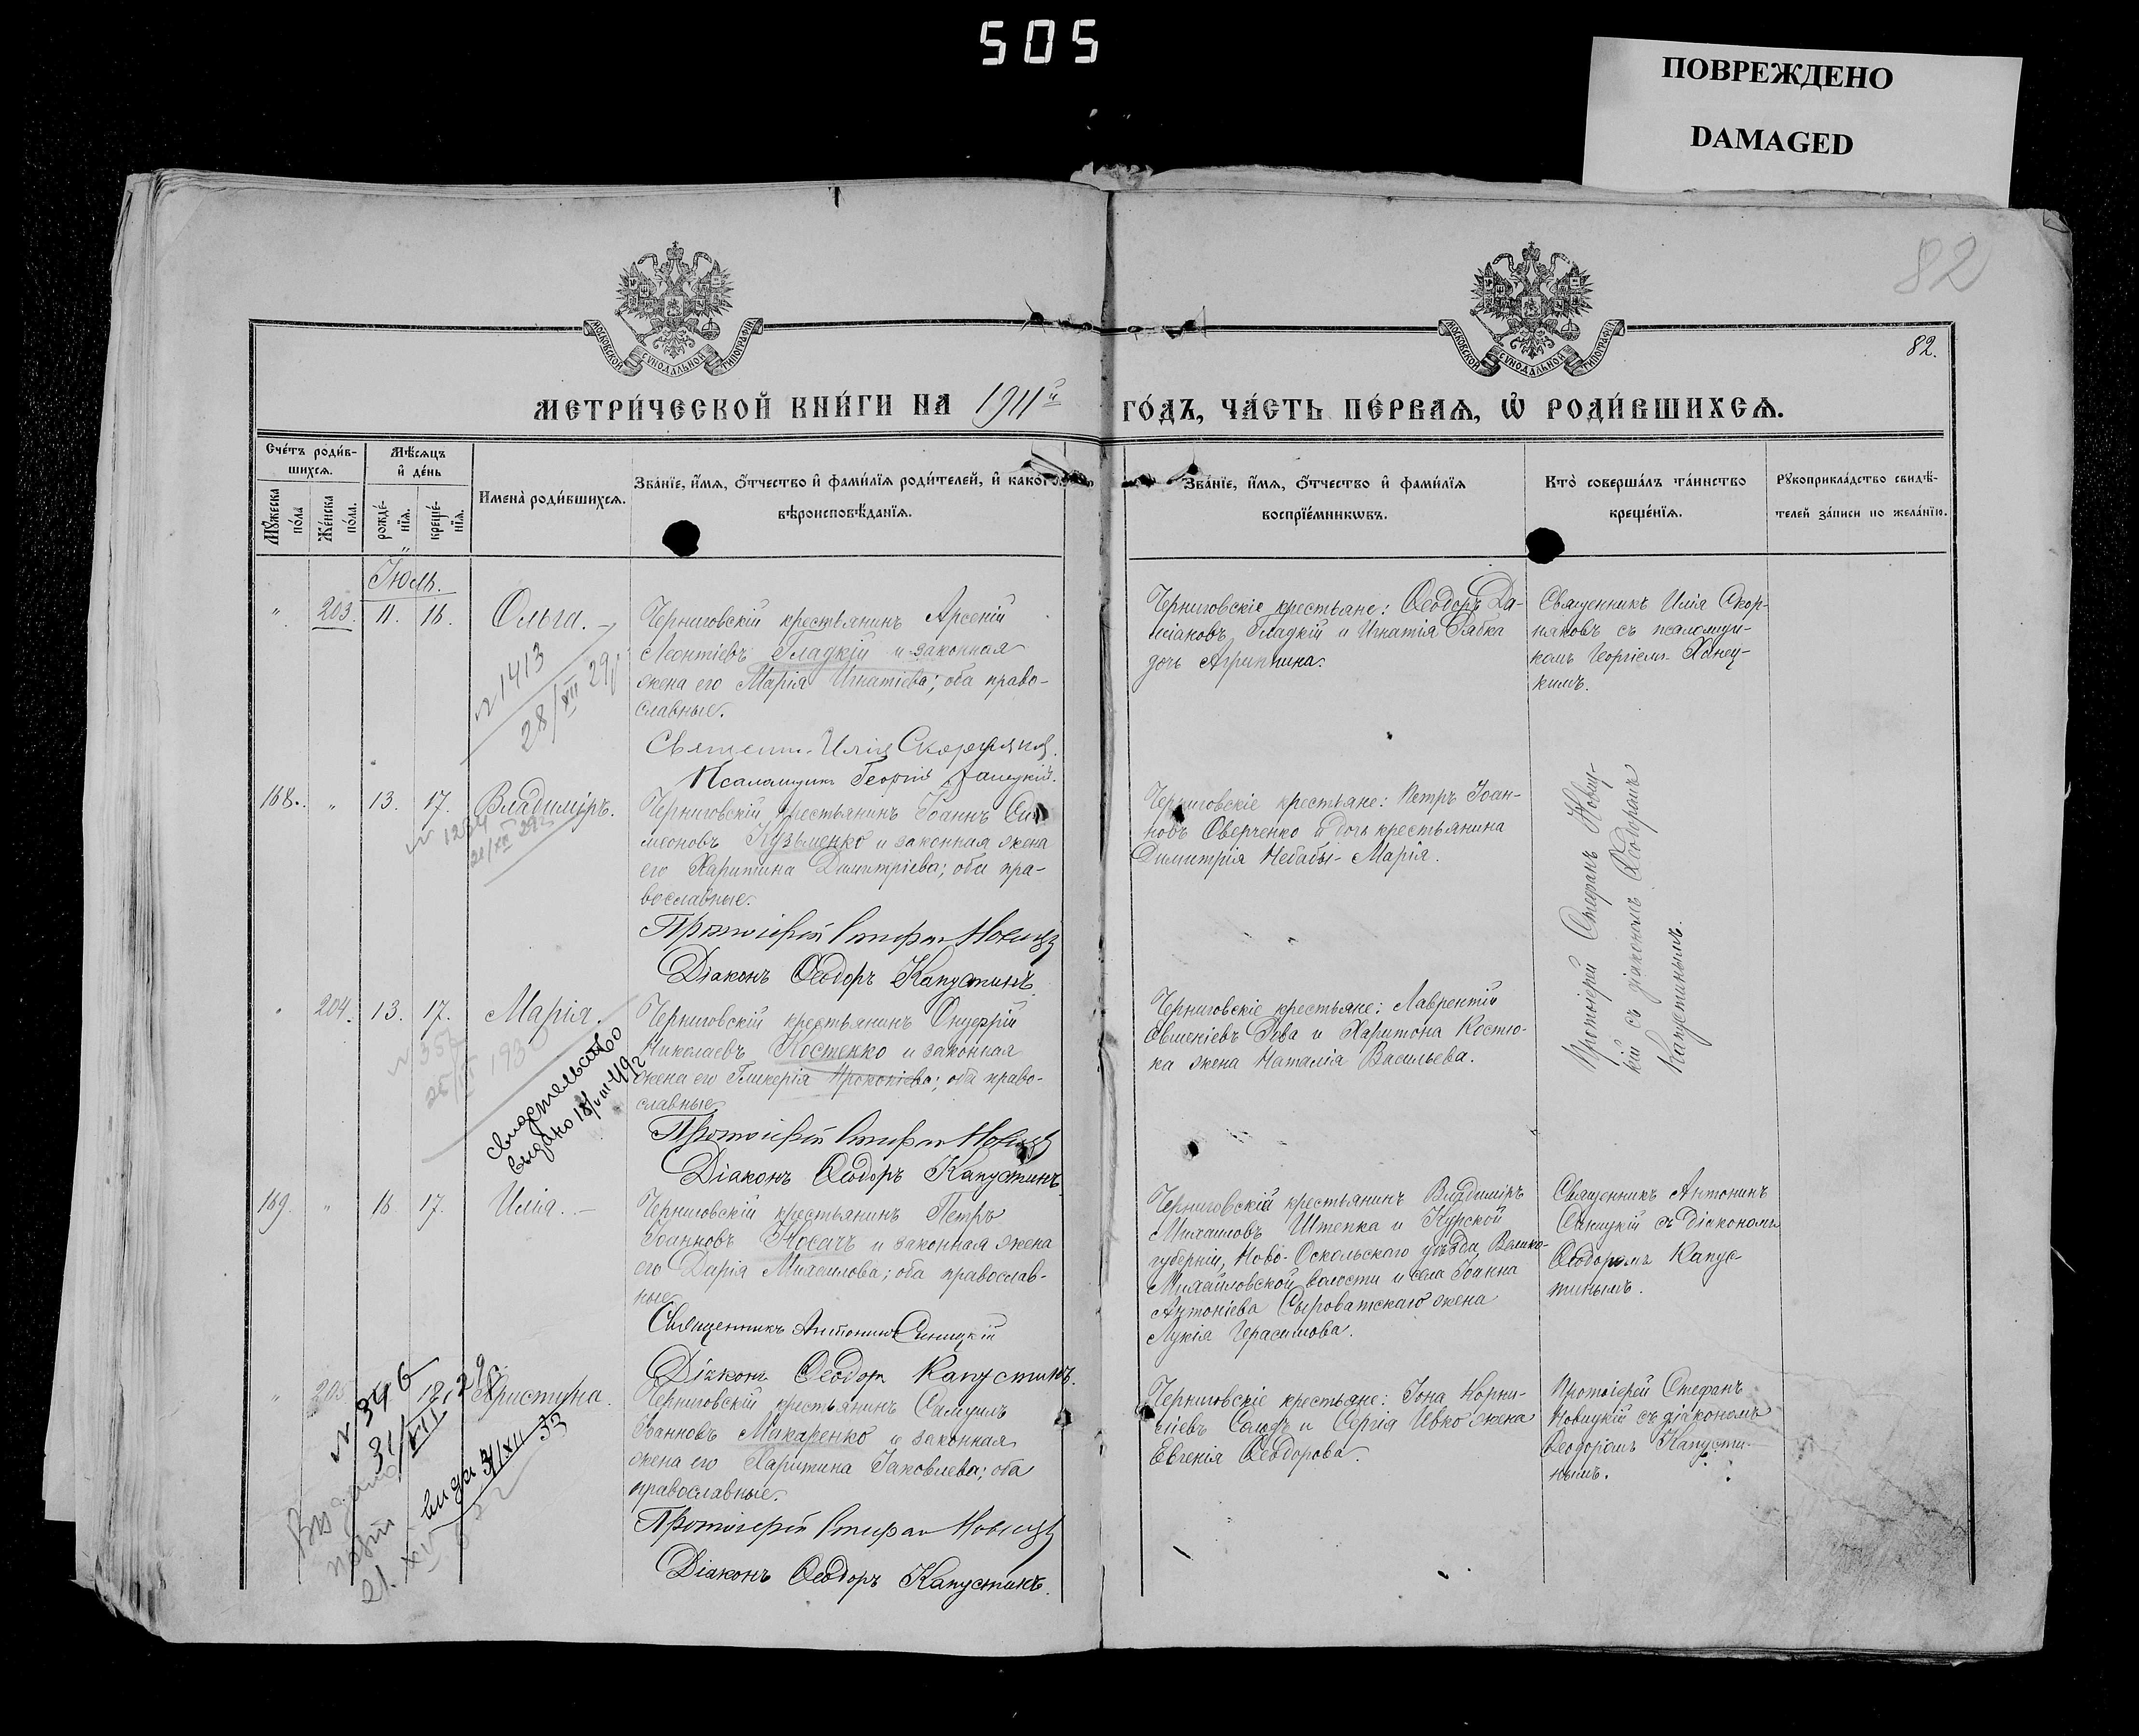 505
ПОВРЕЖДЕНО
DAMAGED
82
МОСКОВСКОЙ СѴНОДАЛЬНОЙ ТИПОГРАФІИ
МОСКОВСКОЙ СѴНОДАЛЬНОЙ ТИПОГРАФІИ
82.
МЕТРИ́ЧЕСКОЙ КНИ́ГИ НА 1911й ГО́ДЪ, ЧА́СТЬ ПЕ́РВАѦ, Ѡ҆ РОДИ́ВШИХСѦ.
Сче́тъ роди́в-
шихсѧ.
Мꙋ́жеска по́ла
Же́нска по́ла.
Мѣ́сѧцъ
и҆ де́нь
рожде́-
нїѧ.
креще́-
нїѧ.
Имена̀ роди́вшихсѧ.
Зва́нїе, и҆́мѧ, ѻ҆́тчество и҆ фами́лїѧ роди́телей, и҆ како́гѡ
вѣроисповѣ́данїѧ.
Зва́нїе, и҆́мѧ, ѻ҆́тчество и҆ фами́лїѧ
воспрїе́мникѡвъ.
Кто̀ соверша́лъ та́инство
креще́нїѧ.
Рꙋкоприкла́дство свидѣ́-
телей за́писи по жела́нїю.
Іюль.
" 203. 11. 16. Ольга.
Черниговскій крестьянинъ Арсеній
Леонтіевъ Гладкій и законная
жена его Марія Игнатіева; оба право-
славные.
Священ. Илія Скорняков
Псаломщикъ Георгій Ханецкій.
Черниговскіе крестьяне: Ѳеодоръ Да-
міановъ Гладкій и Игнатія Рябка
дочь Агриппина.
Священникъ Илія Скор-
няковъ съ псаломщи-
комъ Георгіемъ Ханец-
кимъ.
№ 1413
28/XII 29
168. " 13. 17. Владиміръ.
№ 1254
Черниговскій крестьянинъ Іоаннъ Си-
меоновъ Кузьменко и законная жена
его Харитина Димитріева; оба пра-
вославные.
Протоіерей Стефан Новицкій
Діаконъ Ѳеодоръ Капустинъ.
Черниговскіе крестьяне: Петръ Іоан-
новъ Оверченко и дочь крестьянина
Димитрія Небабы - Марія.
Протоіерей Стефанъ Новиц-
кій съ діакономъ Ѳеодоромъ
Капустинымъ.
" 204. 13. 17. Марія.
Черниговскій крестьянинъ Онуфрій
Николаевъ Костенко и законная
жена его Гликерія Прокопіева; оба право-
славные
Протоіерей Стефан Новицкій
Діаконъ Ѳеодоръ Капустинъ.
Черниговскіе крестьяне: Лаврентій
Евменіевъ Рева и Харитона Костю-
ка жена Наталія Васильева.
свидетельство
выдано 18/VIII-49г
169. " 16. 17. Илія.
Черниговскій крестьянинъ Петръ
Іоанновъ Носачъ и законная жена
его Дарія Михаилова; оба православ-
ные
Священникъ Антонин Синицкій
Діакон Ѳеодор Капустинъ.
Черниговскій крестьянинъ Владиміръ
Михаиловъ Штепка и Курской
губерніи, Ново-Оскольскаго уѣзда, Велико-
Михайловской волости и села Іоанна
Антоніева Сыроватскаго жена
Лукія Герасимова.
Священникъ Антонинъ
Синицкій съ діакономъ
Ѳеодоромъ Капус-
тинымъ.
" 205 Христина.
№ 346
31/XII 29г.
выдан 31/XII 33
Черниговскій крестьянинъ Самуилъ
Іоанновъ Макаренко и законная
жена его Харитина Іаковлева; оба
православные.
Протоіерей Стефан Новицкій
Діаконъ Ѳеодоръ Капустинъ.
Черниговскіе крестьяне: Іона Корни-
ліевъ и Сергія Ивко жена
Евгенія Ѳеодорова.
Протоіерей Стефанъ
Новицкій съ діакономъ
Ѳеодоромъ Капусти-
нымъ.